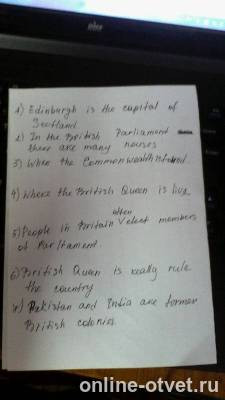 1) Edinburgh is the capital of
Scotland
2) In the British Parliament
there are many houses
3) When the Commonwealth
4) Where the British Queen is live
often
5) People in Britain elect members
of Parliament.
6) British Queen is really rule
the country
Pakistan and India are former
British colonies.
online-otvet.ru